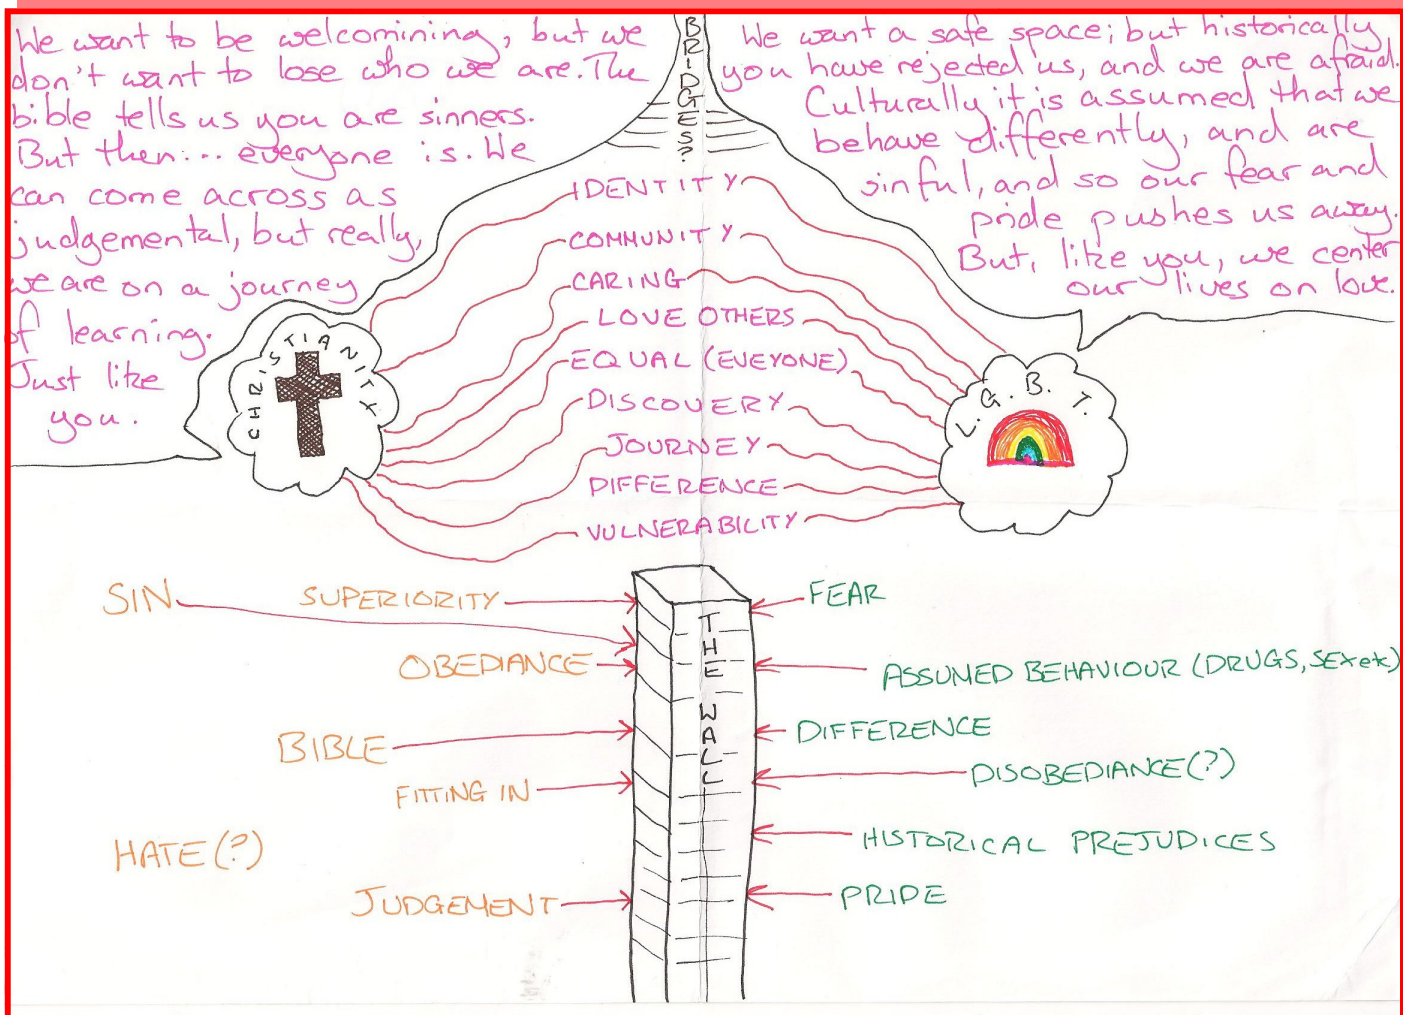 We want to be welcomining, but we
don't want to lose who we are. The
bible tells us you are sinners.
But then... everyone is. We
can come across as
judgemental, but really,
we are on a journey
of learning.
Just like
you.
BRIDGES?
We want a safe space; but historically
you have rejected us, and we are afraid.
Culturally it is assumed that we
behave differently, and are
sinful, and so our fear and
pride pushes us away.
But, like you, we center
our lives on love.
CHRISTIANITY
L.G.B.T.
IDENTITY
COMMUNITY
CARING
LOVE OTHERS
EQUAL (EVEYONE)
DISCOVERY
JOURNEY
DIFFERENCE
VULNERABILITY
THE WALL
SIN
SUPERIORITY
OBEDIANCE
BIBLE
FITTING IN
HATE (?)
JUDGEMENT
FEAR
ASSUMED BEHAVIOUR (DRUGS, SEX etc)
DIFFERENCE
DISOBEDIANCE (?)
HISTORICAL PREJUDICES
PRIDE